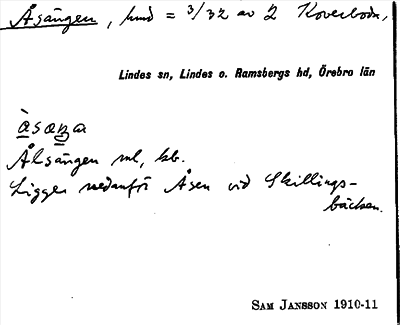 Åsängen, hmd = 3/32 av 2 Koverboda,
Lindes sn, Lindes o. Ramsbergs hd, Örebro län
àsæŋa
Ålsängen ml, kb.
Ligger nedanför Åsen vid Skillings-
bäcken.
SAM JANSSON 1910-11